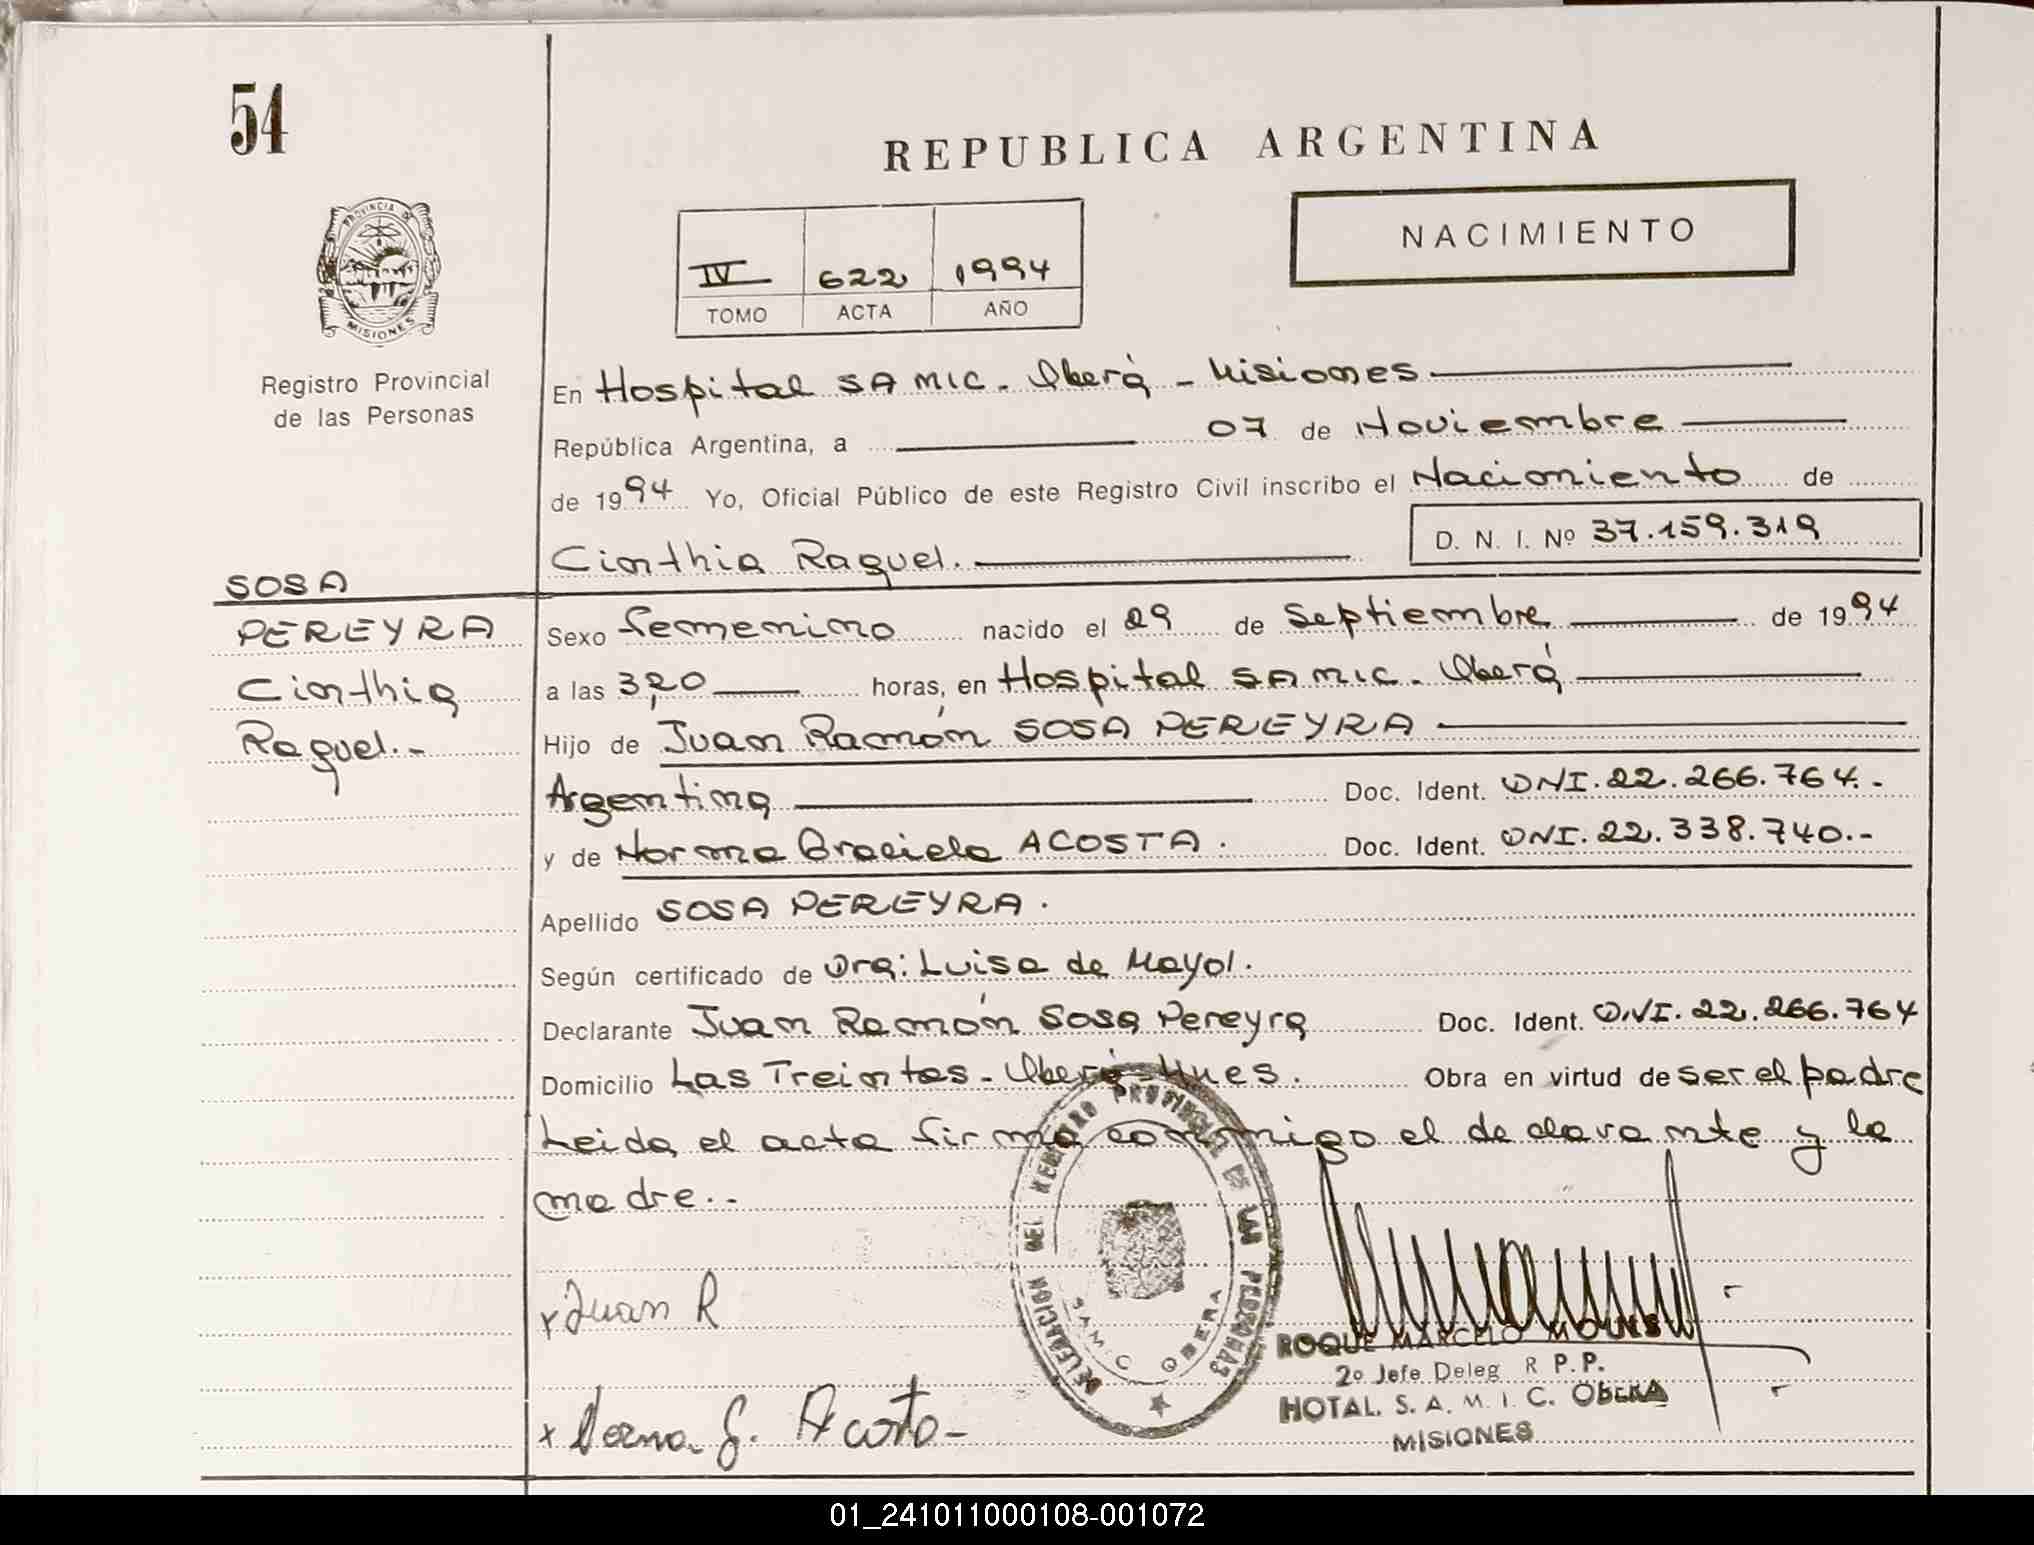 54
REPUBLICA ARGENTINA
NACIMIENTO
IV 622 1994
TOMO ACTA AÑO
PROVINCIA DE
MISIONES
Registro Provincial
de las Personas
En Hospital SAMIC. Oberá - Misiones
República Argentina, a 07 de Noviembre
de 1994 Yo, Oficial Público de este Registro Civil inscribo el Nacimiento de
D. N. I. Nº 37.159.319
Cinthia Raquel.
SOSA
PEREYRA
Cinthia
Raquel.-
Sexo femenino nacido el 29 de Septiembre de 1994
a las 3,20 horas, en Hospital SAMIC. Oberá
Hijo de Juan Ramón SOSA PEREYRA
Argentina Doc. Ident. DNI. 22.266.764.-
y de Norma Graciela ACOSTA. Doc. Ident. DNI. 22.338.740.-
Apellido SOSA PEREYRA.
Según certificado de Dra: Luisa de Mayol.
Declarante Juan Ramón Sosa Pereyra Doc. Ident. DNI. 22.266.764
Domicilio Las Treintas - Oberá - Mnes. Obra en virtud de ser el padre
Leida el acta firma conmigo el declarante y la
madre..-
DELEGACION DEL REGISTRO PROVINCIAL DE LAS PERSONAS
SAMIC OBERA
x Juan R
x Norma G. Acosta-
ROQUE MARCELO
2º Jefe Deleg R P.P.
HOTAL. S. A. M. I. C. OBERA
MISIONES
01_241011000108-001072